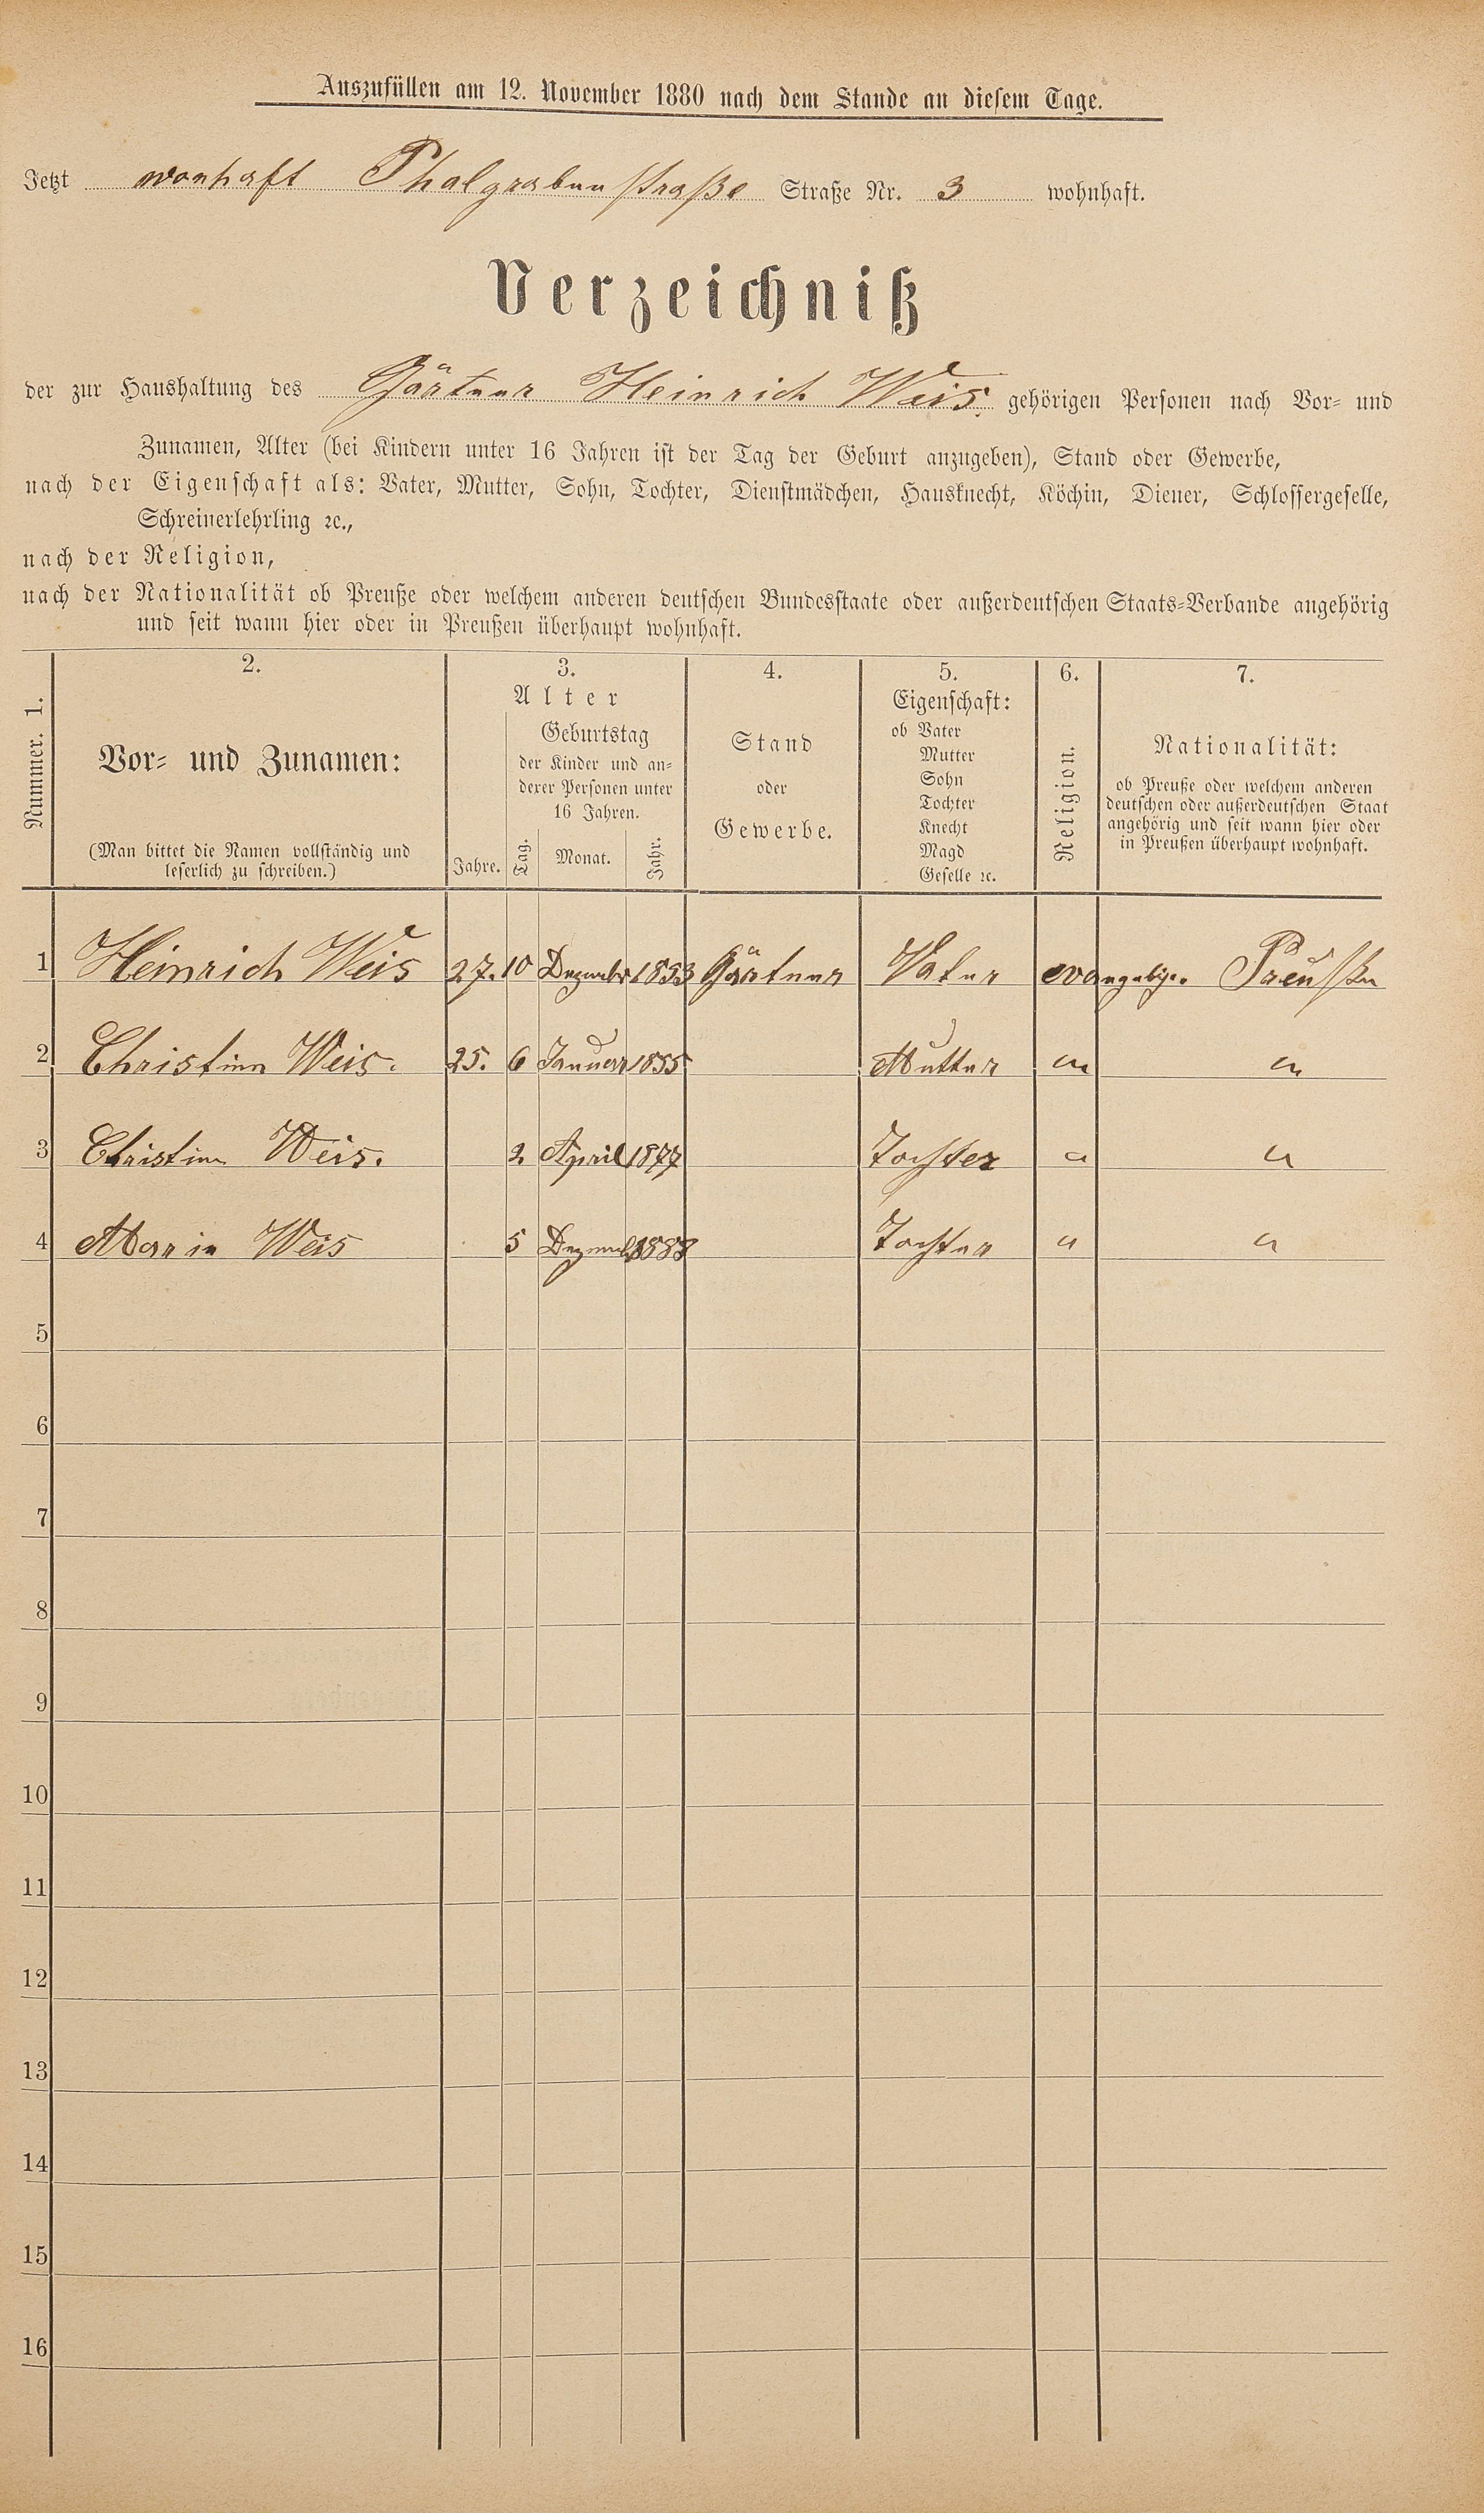 Auszufüllen am 12. November 1880 nach dem Stande an diesem Tage.
Jetzt wonhaft Thalgrabenstraße Straße Nr. 3 wohnhaft.
Verzeichniß
der zur Haushaltung des Gärtner Heinrich Weis. gehörigen Personen nach Vor- und
Zunamen, Alter (bei Kindern unter 16 Jahren ist der Tag der Geburt anzugeben), Stand oder Gewerbe,
nach der Eigenschaft als: Vater, Mutter, Sohn, Tochter, Dienstmädchen, Hausknecht, Köchin, Diener, Schlossergeselle,
Schreinerlehrling ꝛc.,
nach der Religion,
nach der Nationalität ob Preuße oder welchem anderen deutschen Bundesstaate oder außerdeutschen Staats-Verbande angehörig
und seit wann hier oder in Preußen überhaupt wohnhaft.
Nummer. 1.
2.
Vor- und Zunamen:
(Man bittet die Namen vollständig und
leserlich zu schreiben.)
3.
Alter
Jahre.
Geburtstag
der Kinder und an-
derer Personen unter
16 Jahren.
Tag. Monat. Jahr.
4.
Stand
oder
Gewerbe.
5.
Eigenschaft:
ob Vater
Mutter
Sohn
Tochter
Knecht
Magd
Geselle ꝛc.
6.
Religion.
7.
Nationalität:
ob Preuße oder welchem anderen
deutschen oder außerdeutschen Staat
angehörig und seit wann hier oder
in Preußen überhaupt wohnhaft.
1 Heinrich Weis 27. 10 Dezember 1853 Gärtner Vater Preußen
2 Christine Weis. 25. 6 Januar 1855 Mutter " "
3 Christine Weis. 2 April 1877 Tochter " "
4 Marie Weis 5 Tochter " "
5
6
7
8
9
10
11
12
13
14
15
16